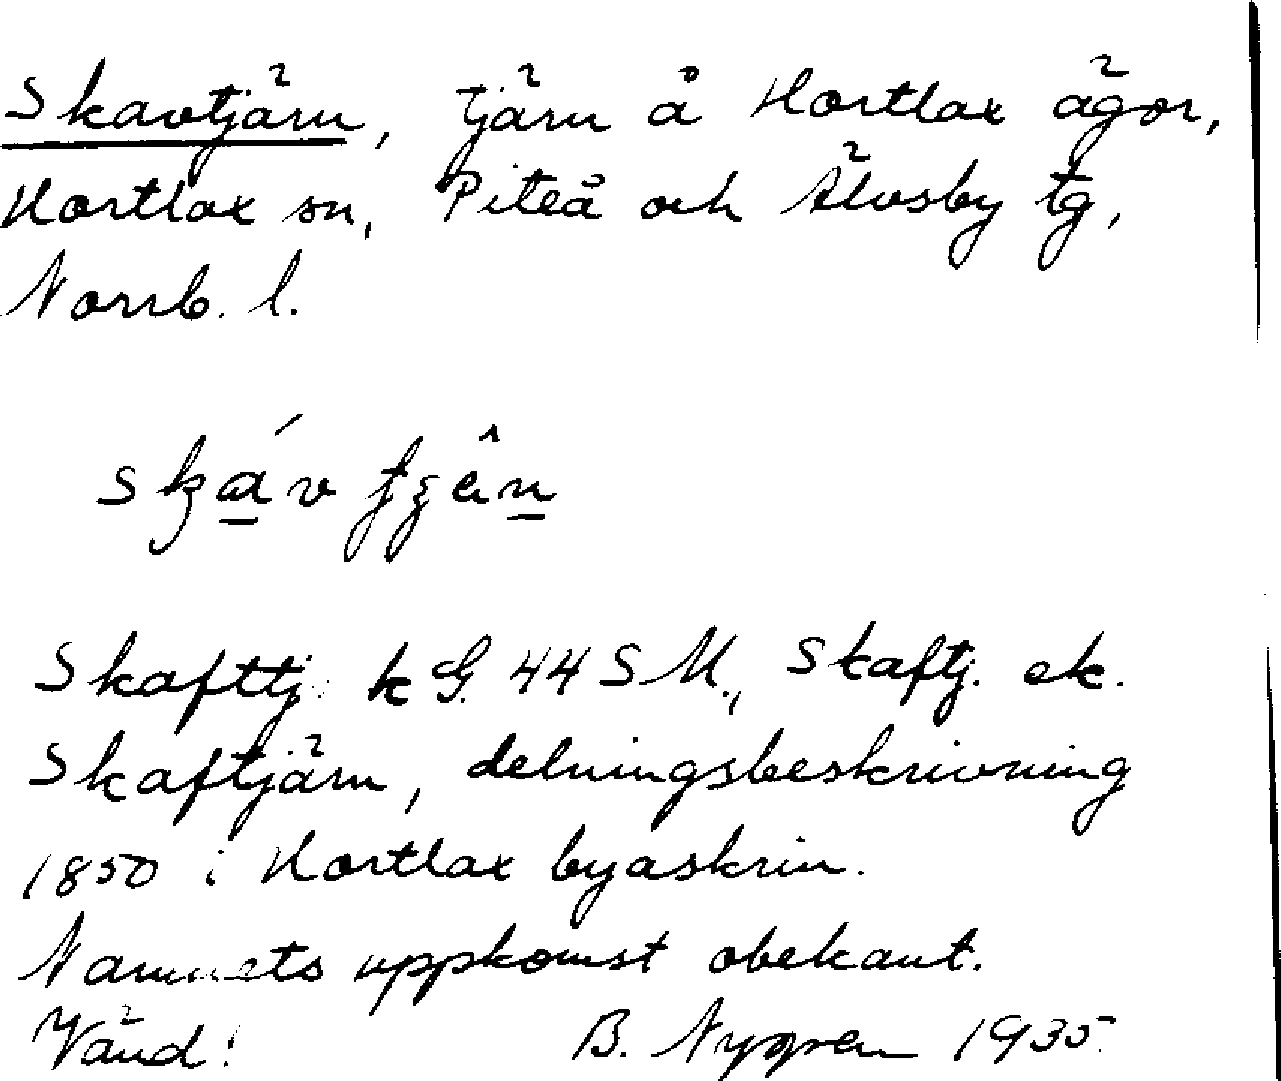 Skavtjärn, tjärn å Hortlax ägor,
Hortlax sn, Piteå och Älvsby tg,
Norrb. l.
Skafttj. k G. 44 S M., Skaftj. ek.
Skaftjärn, delningsbeskrivning
1850 i Hortlax byaskrin.
Namnets uppkomst obekant.
Vänd! B. Nygren 1935.